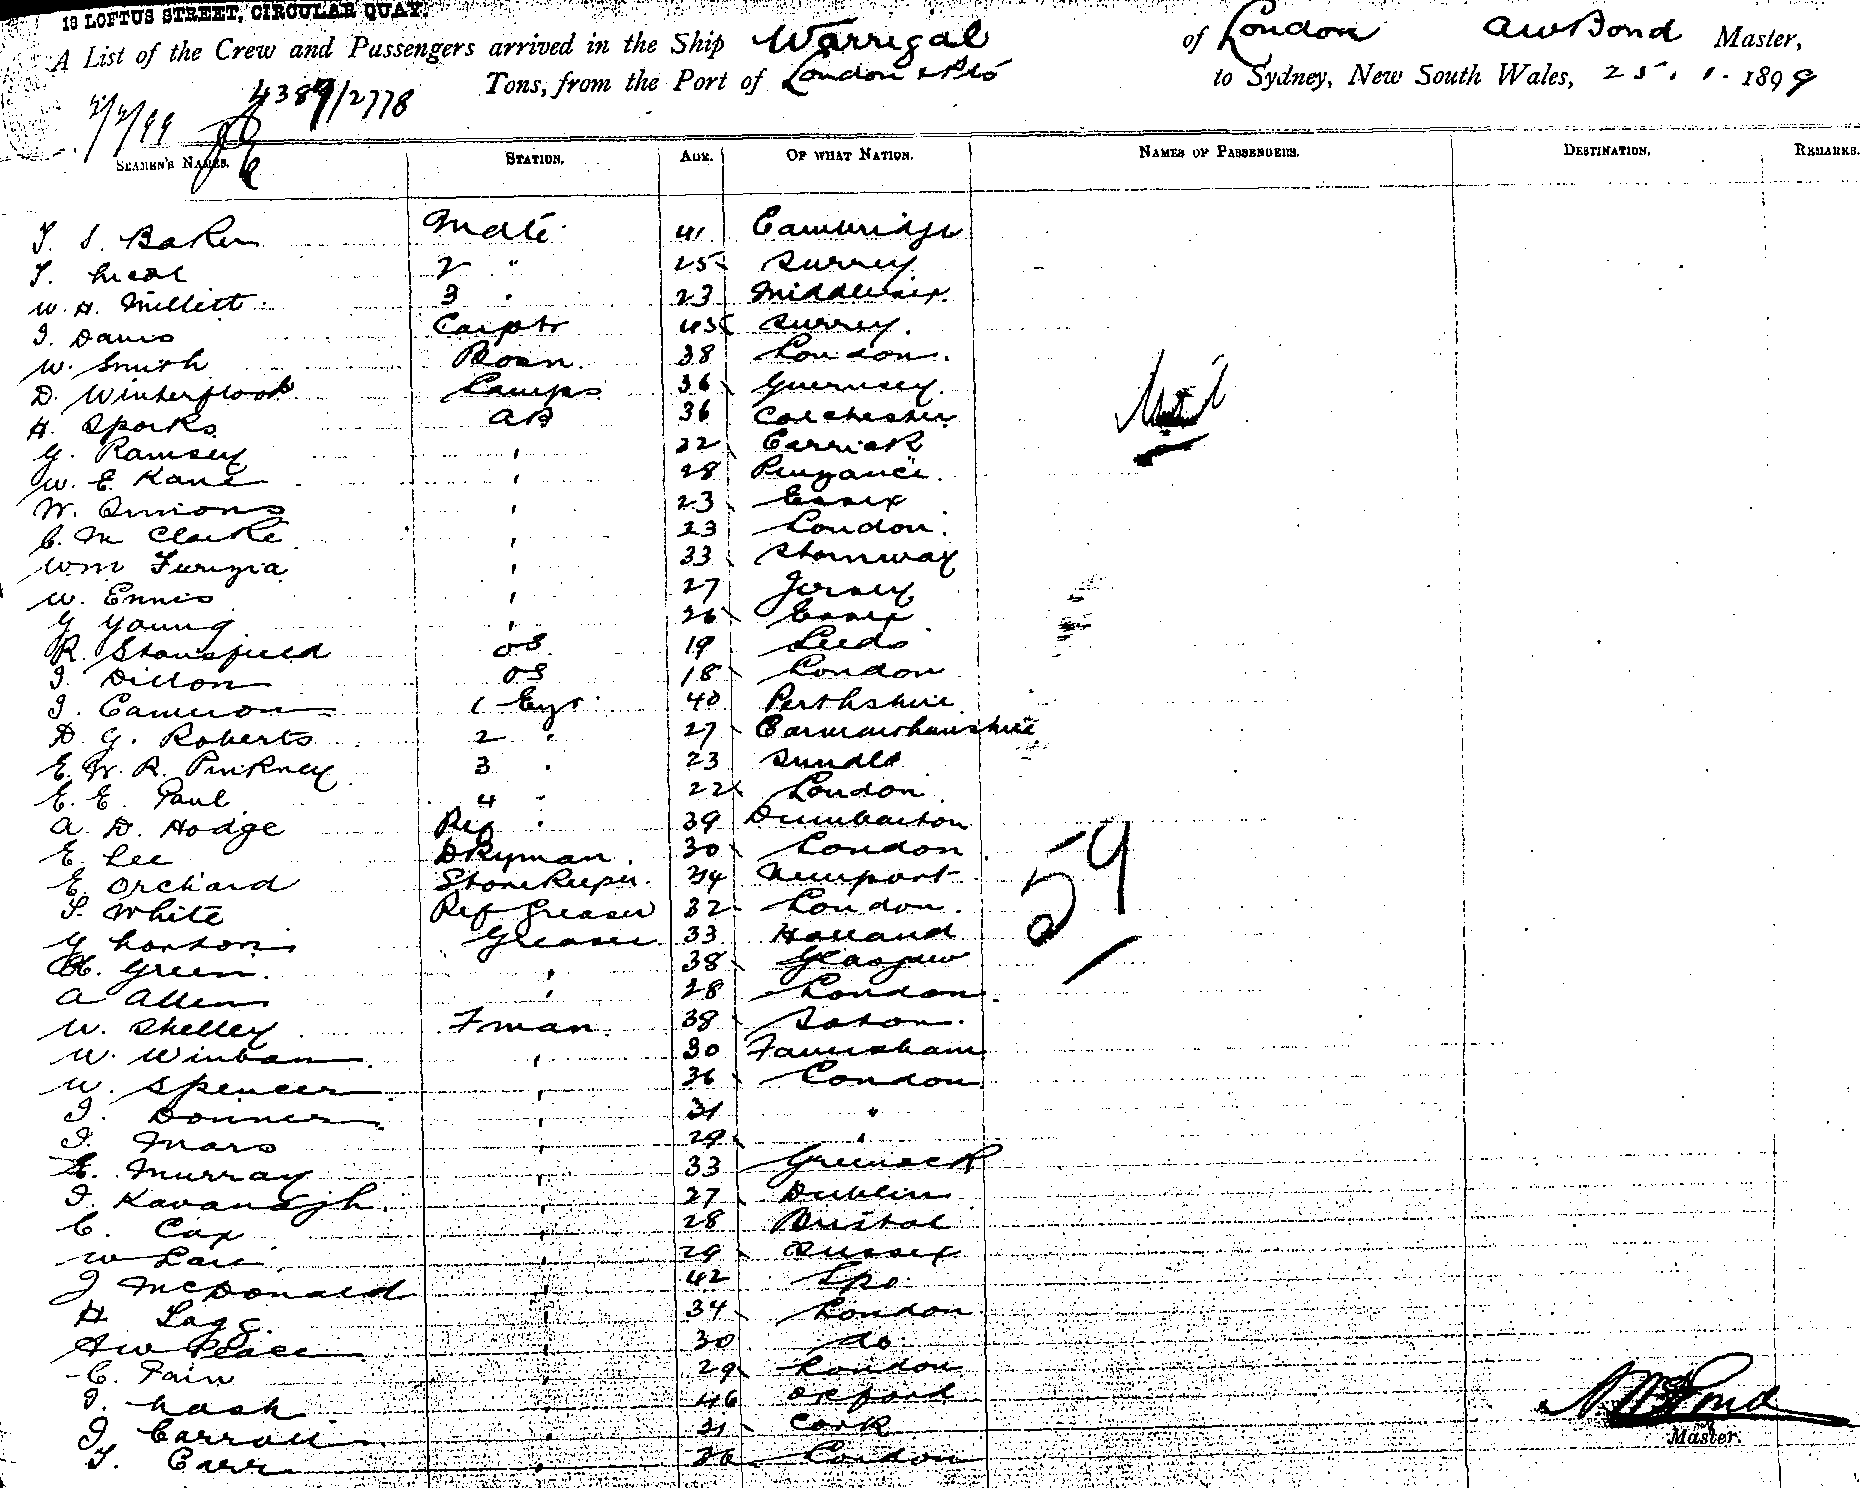 18 LOFTUS STREET, CIRCULAR QUAY.
A List of the Crew and Passengers arrived in the Ship Warrigal of London AW Bond Master,
Tons, from the Port of London & Pts to Sydney, New South Wales, 25. 1. 1899
4389/2778
SEAMEN'S NAMES. STATION. AGE. OF WHAT NATION. NAMES OF PASSENGERS. DESTINATION. REMARKS.
T. S. Baker Mate 41 Cambridge
T. Neal 2 " 25 Surrey
W. H. Millett 3 " 23 Middlesex
J. Davis Carptr 45 Surrey
W. Smith Bosn 38 London
D. Winterflood Lamps 36 Guernsey
H. Sparks AB 36 Colchester
G. Ramsey " 32 Carrick
W. E. Kane " 28 Penzance
W. Simons " 23 Essex
C. M Clarke " 23 London
Wm " 33 Stornway
W. Ennis " 27 Jersey
G Young " 26 Essex
R. Stansfield OS 19 Leeds
J. Dillon OS 18 London
J. Cameron 1 Engr 40 Perthshire
D. G. Roberts 2 " 27 Carmarthenshire
E. W. R. Pinkney 3 " 23 Sundld
E. E. Paul 4 " 22 London
A. D. Hodge Ref " 39 Dumbarton
E. Lee Dkyman 30 London
E. Orchard Storekeeper 24 Newport
S. White Ref Greaser 32 London
G Greaser 33 Holland
H. Green " 38 Glasgow
A Allen " 28 London
W. Shelley Fman 38
W. " 30 Faversham
W. Spencer " 36 London
J. Donner " 31 "
J. Mars " 29 "
E. Murray " 33 Greenock
J. Kavanagh " 27 Dublin
C. Cox " 28 Bristol
W " 29 Sussex
J McDonald " 42
H " 34 London
A W Place " 30 do
C. Fain " 29 London
J. Nash " 46 Oxford
J. Carroll " 21 Cork
T. Carr " 36 London
Nil
59
Master.